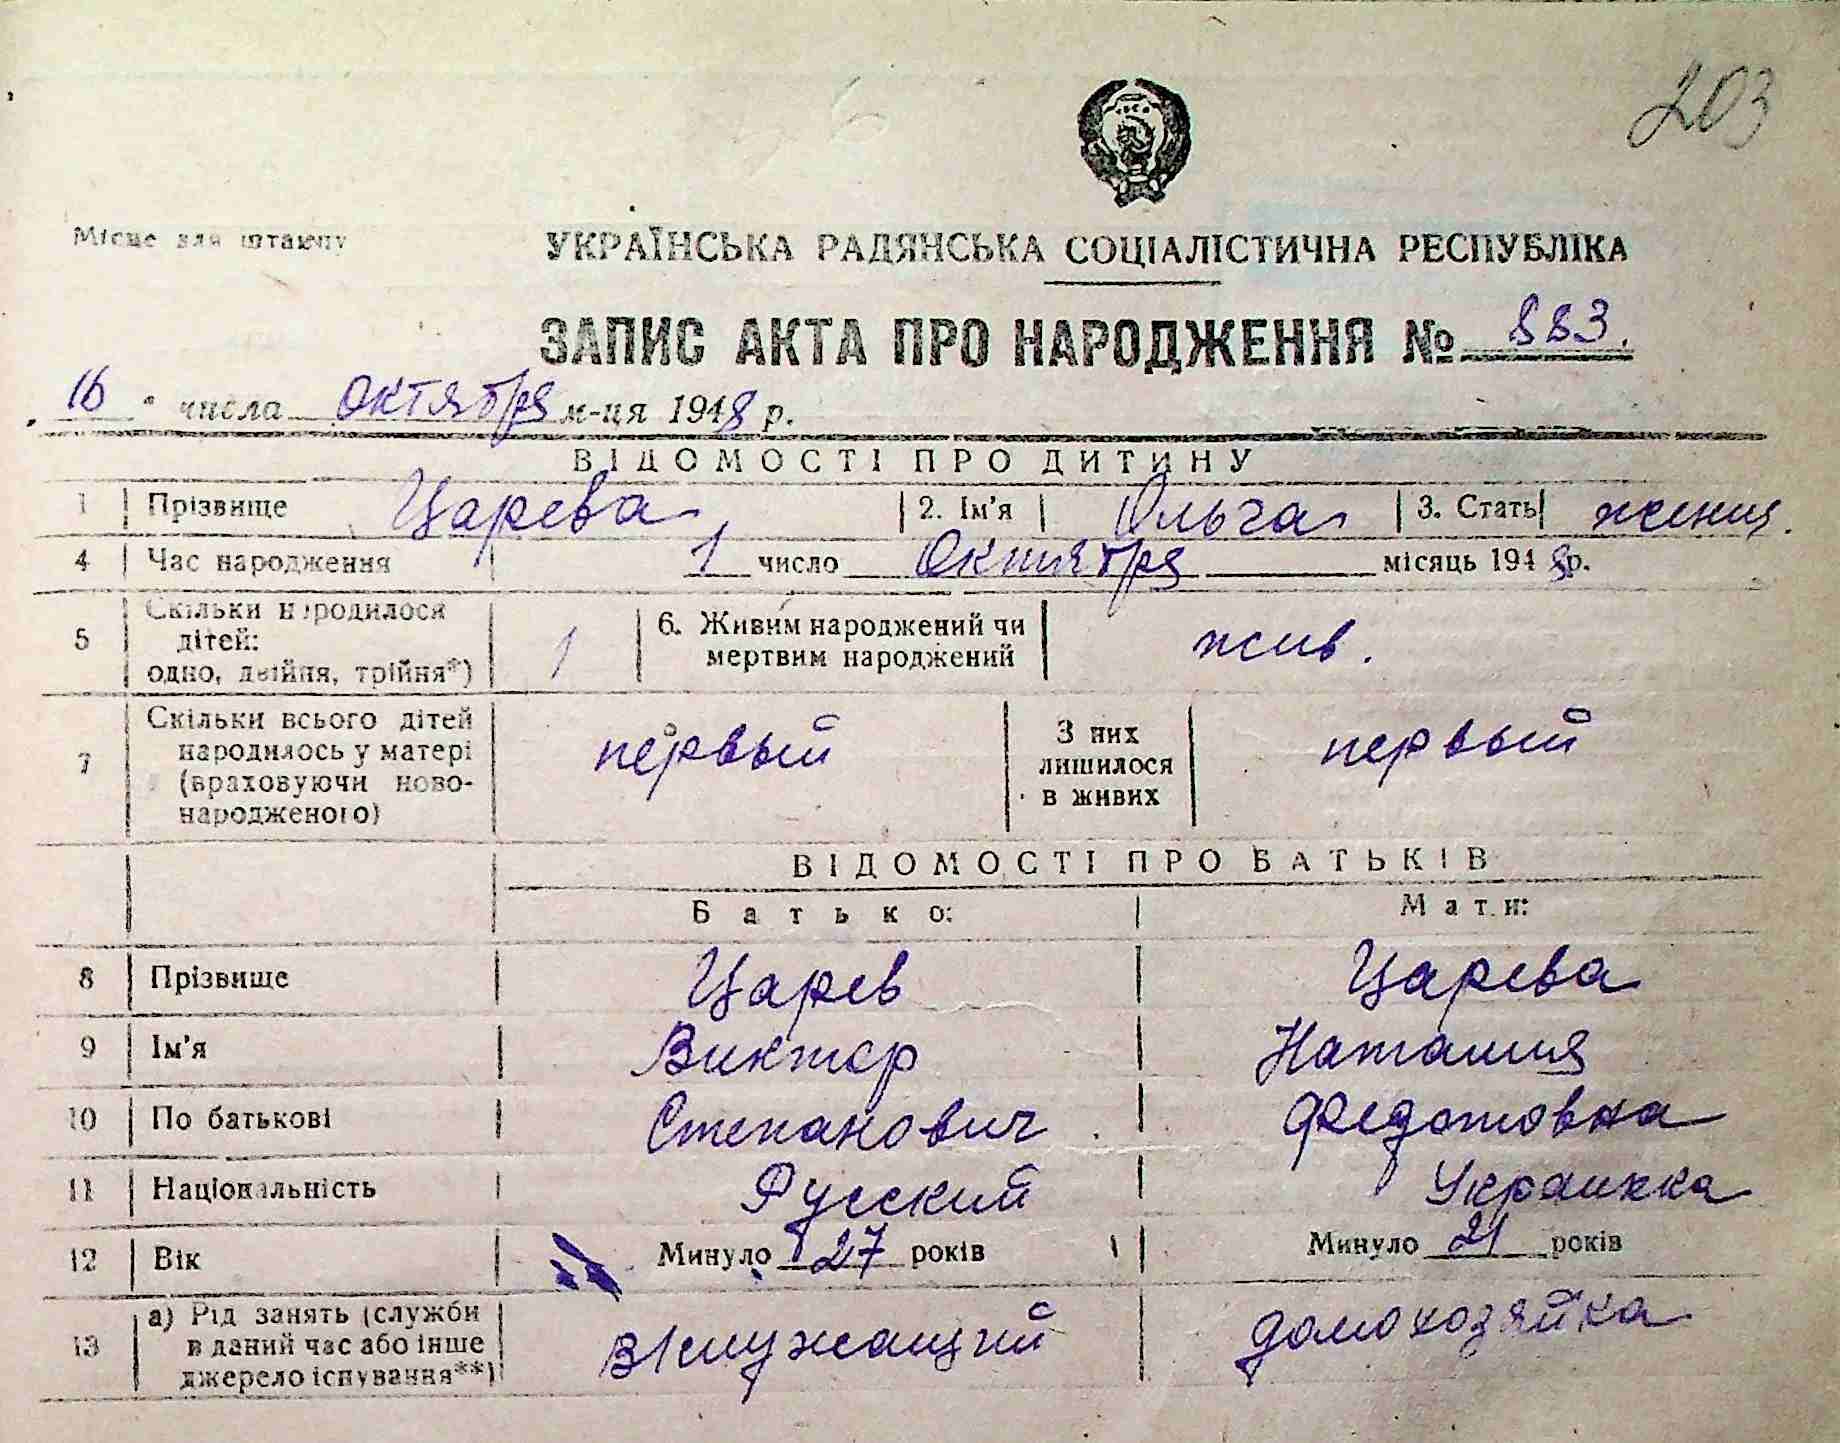 203
Місце для штампу
УКРАЇНСЬКА РАДЯНСЬКА СОЦІАЛІСТИЧНА РЕСПУБЛІКА
ЗАПИС АКТА ПРО НАРОДЖЕННЯ № 883.
„16" числа октября м-ця 1948 р.
ВІДОМОСТІ ПРО ДИТИНУ
1 Прізвище Царева 2. Ім'я Ольга 3. Стать женщ.
4 Час народження 1 число Октября місяць 1948 р.
5 Скільки народилося дітей: одно, двійня, трійня*) 1 6. Живим народжений чи мертвим народжений жив.
7 Скільки всього дітей народилось у матері (враховуючи ново-народженого) первый З них лишилося в живих первый
ВІДОМОСТІ ПРО БАТЬКІВ
Батько: Мати:
8 Прізвище Царев Царева
9 Ім'я Виктор Наталия
10 По батькові Степанович Федотовна
11 Національність Русский Украинка
12 Вік Минуло 27 років Минуло 21 років
13 а) Рід занять (служби в даний час або інше джерело існування**) в/служащий домохозяйка